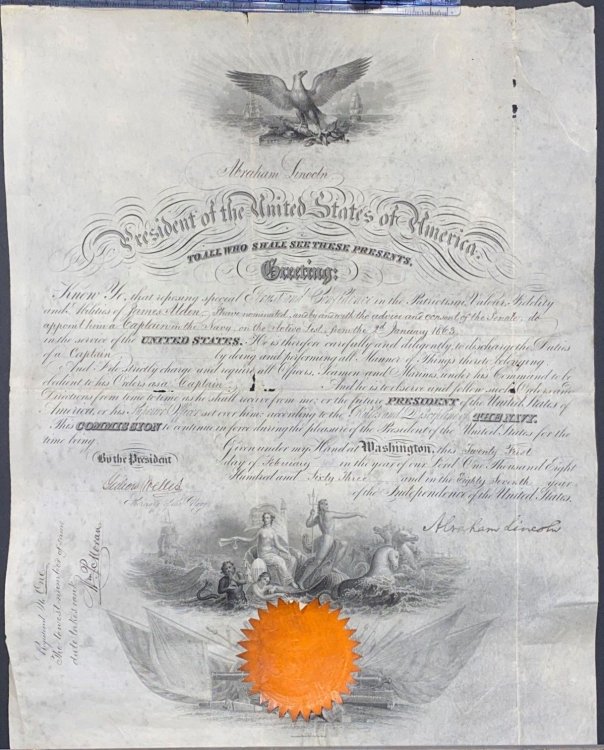 Abraham Lincoln
President of the United States of America.
TO ALL WHO SHALL SEE THESE PRESENTS,
Greeting:
Know Ye, that reposing special Trust and Confidence in the Patriotism, Valour, Fidelity
and Abilities of James Alden I have nominated, and by and with the advice and consent of the Senate, do
appoint him a Captain in the Navy, on the Active List, from the 2d January 1863
in the service of the UNITED STATES. He is therefore carefully and diligently to discharge the Duties
of a Captain by doing and performing all Manner of Things thereto belonging.
And I do strictly charge and require all Officers, Seamen and Marines under his Command to be
obedient to his Orders as a Captain And he is to observe and follow such Orders and
Directions from time to time as he shall receive from me, or the future PRESIDENT of the United States of
America, or his Superior Officer set over him, according to the Rules and Discipline of THE NAVY.
This COMMISSION to continue in force during the pleasure of the President of the United States for the
time being.
Given under my Hand at Washington, this Twenty First
day of February in the year of our Lord One Thousand Eight
Hundred and Sixty Three and in the Eighty Seventh year
of the Independence of the United States.
By the President
Gideon Welles
Abraham Lincoln
Registered No One
The lowest number of same
date takes rank